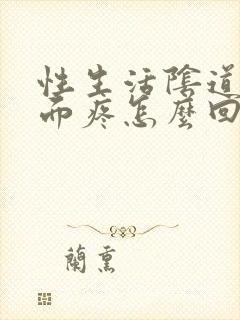 性生活陰道
而疼怎麼回
蘭熏